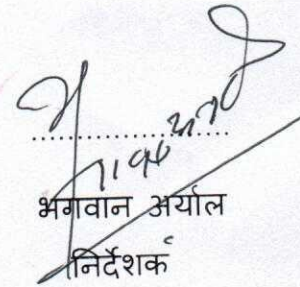 ....................
भगवान अर्याल
निर्देशक